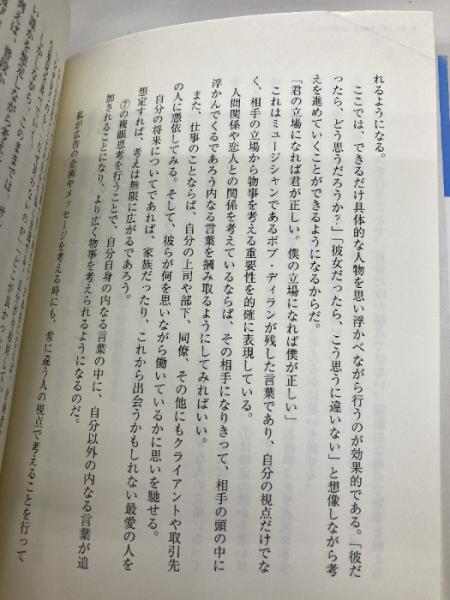 れるようになる。
ここでは、できるだけ具体的な人物を思い浮かべながら行うのが効果的である。「彼だ
ったら、どう思うだろうか？」「彼女だったら、こう思うに違いない」と想像しながら考
えを進めていくことができるようになるからだ。
「君の立場になれば君が正しい。僕の立場になれば僕が正しい」
これはミュージシャンであるボブ・ディランが残した言葉であり、自分の視点だけでな
く、相手の立場から物事を考える重要性を的確に表現している。
人間関係や恋人との関係を考えているならば、その相手になりきって、相手の頭の中に
浮かんでくるであろう内なる言葉を摑み取るようにしてみればいい。
また、仕事のことならば、自分の上司や部下、同僚、その他にもクライアントや取引先
の人に憑依してみる。そして、彼らが何を思いながら働いているかに思いを馳せる。
自分の将来についてであれば、家族だったり、これから出会うかもしれない最愛の人を
想定すれば、考えは無限に広がるであろう。
⑦の複眼思考を行うことで、自分自身の内なる言葉の中に、自分以外の内なる言葉が追
加されることになり、より広く物事を考えられるようになるのだ。
私が広告の企画やメッセージを考える時にも、常に違う人の視点で考えることを行って